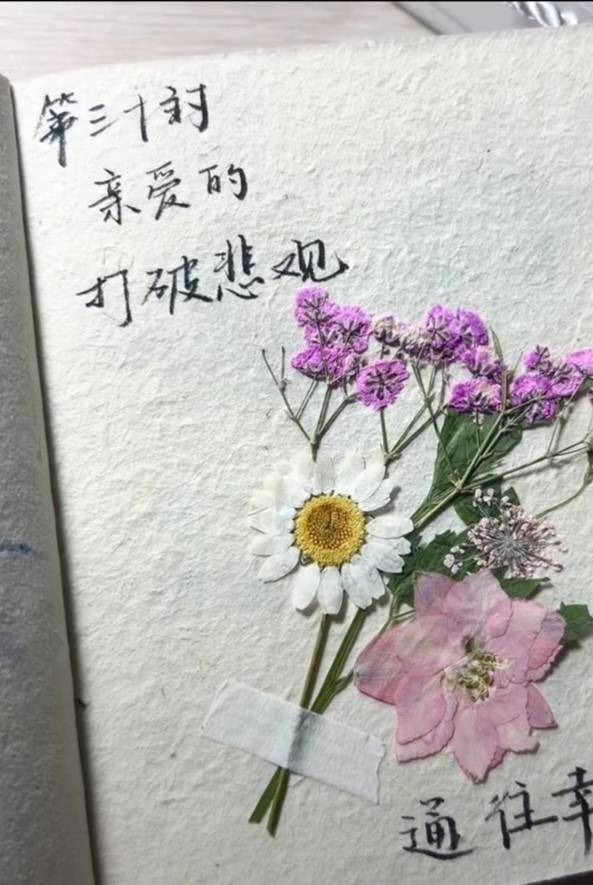 第三十封
亲爱的
打破悲观
通往幸